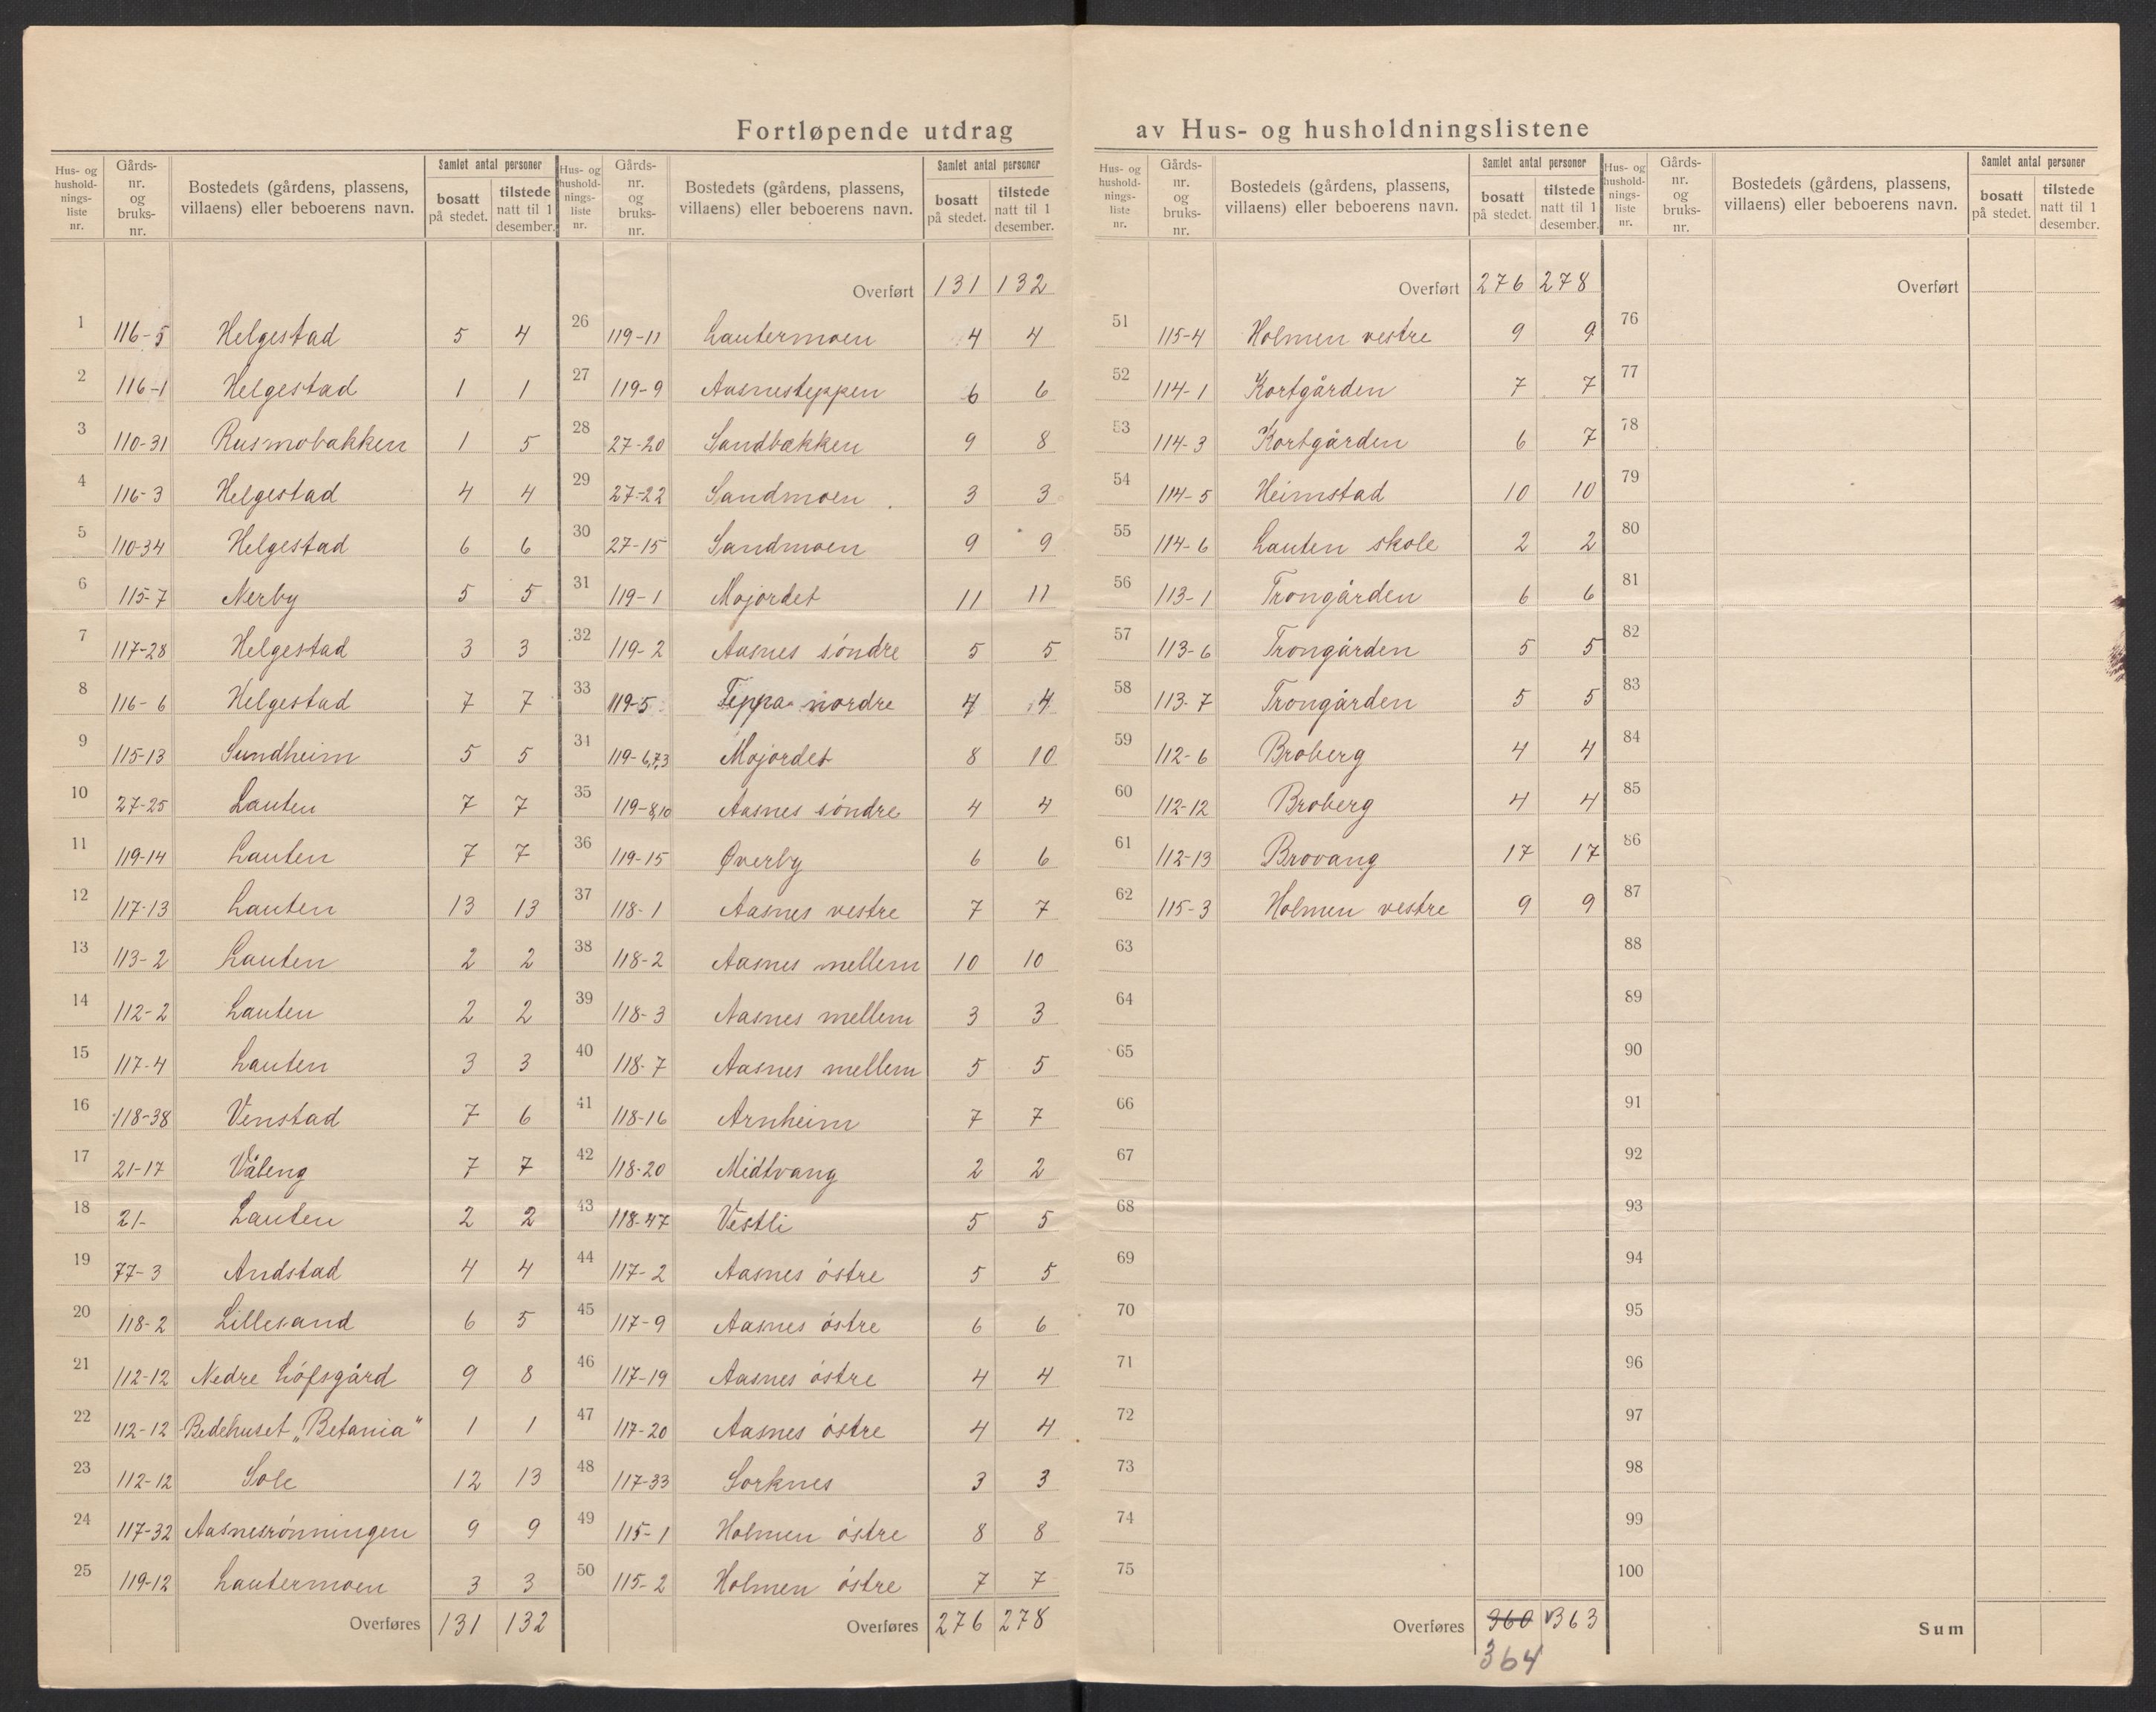 Fortløpende utdrag av Hus- og husholdningslistene
Hus- og hushold-nings-liste nr. | Gårds-nr. og bruks-nr. | Bostedets (gårdens, plassens, villaens) eller beboerens navn. | Samlet antal personer | bosatt på stedet. | tilstede natt til 1 desember.
1 116-5 Helgestad 5 4
2 116-1 Helgestad 1 1
3 110-31 Rusmobakken 1 5
4 116-3 Helgestad 4 4
5 110-34 Helgestad 6 6
6 115-7 Nerby 5 5
7 117-28 Helgestad 3 3
8 116-6 Helgestad 7 7
9 115-13 Sundheim 5 5
10 27-25 Lauten 7 7
11 119-14 Lauten 7 7
12 117-13 Lauten 13 13
13 113-2 Lauten 2 2
14 112-2 Lauten 2 2
15 117-4 Lauten 3 3
16 118-38 Venstad 7 6
17 21-17 Våleng 7 7
18 21- Lauten 2 2
19 77-3 Andstad 4 4
20 118-2 Lillesand 6 5
21 112-12 Nedre Löfsgård 9 8
22 112-12 Bedehuset „Betania" 1 1
23 112-12 Sole 12 13
24 117-32 Aasnesrönningen 9 9
25 119-12 Lautermoen 3 3
Overføres 131 132
Hus- og hushold-nings-liste nr. | Gårds-nr. og bruks-nr. | Bostedets (gårdens, plassens, villaens) eller beboerens navn. | Samlet antal personer | bosatt på stedet. | tilstede natt til 1 desember.
Overført 131 132
26 119-11 Lautermoen 4 4
27 119-9 Aasnesteppen 6 6
28 27-20 Sandbækken 9 8
29 27-22 Sandmoen 3 3
30 27-15 Sandmoen 9 9
31 119-1 Mojordet 11 11
32 119-2 Aasnes söndre 5 5
33 119-5 Teppa nordre 4 4
34 119-6,7,3 Mojordet 8 10
35 119-8,10 Aasnes söndre 4 4
36 119-15 Øverby 6 6
37 118-1 Aasnes vestre 7 7
38 118-2 Aasnes mellem 10 10
39 118-3 Aasnes mellem 3 3
40 118-7 Aasnes mellem 5 5
41 118-16 Arnheim 7 7
42 118-20 Midtvang 2 2
43 118-47 Vestli 5 5
44 117-2 Aasnes östre 5 5
45 117-9 Aasnes östre 6 6
46 117-19 Aasnes östre 4 4
47 117-20 Aasnes östre 4 4
48 117-33 Sorknes 3 3
49 115-1 Holmen östre 8 8
50 115-2 Holmen östre 7 7
Overføres 276 278
Hus- og hushold-nings-liste nr. | Gårds-nr. og bruks-nr. | Bostedets (gårdens, plassens, villaens) eller beboerens navn. | Samlet antal personer | bosatt på stedet. | tilstede natt til 1 desember.
Overført 276 278
51 115-4 Holmen vestre 9 9
52 114-1 Kortgården 7 7
53 114-3 Kortgården 6 7
54 114-5 Heimstad 10 10
55 114-6 Lauten skole 2 2
56 113-1 Trongården 6 6
57 113-6 Trongården 5 5
58 113-7 Trongården 5 5
59 112-6 Broberg 4 4
60 112-12 Broberg 4 4
61 112-13 Brovang 17 17
62 115-3 Holmen vestre 9 9
63
64
65
66
67
68
69
70
71
72
73
74
75
Overføres 360 363
364
Hus- og hushold-nings-liste nr. | Gårds-nr. og bruks-nr. | Bostedets (gårdens, plassens, villaens) eller beboerens navn. | Samlet antal personer | bosatt på stedet. | tilstede natt til 1 desember.
Overført
76
77
78
79
80
81
82
83
84
85
86
87
88
89
90
91
92
93
94
95
96
97
98
99
100
Sum